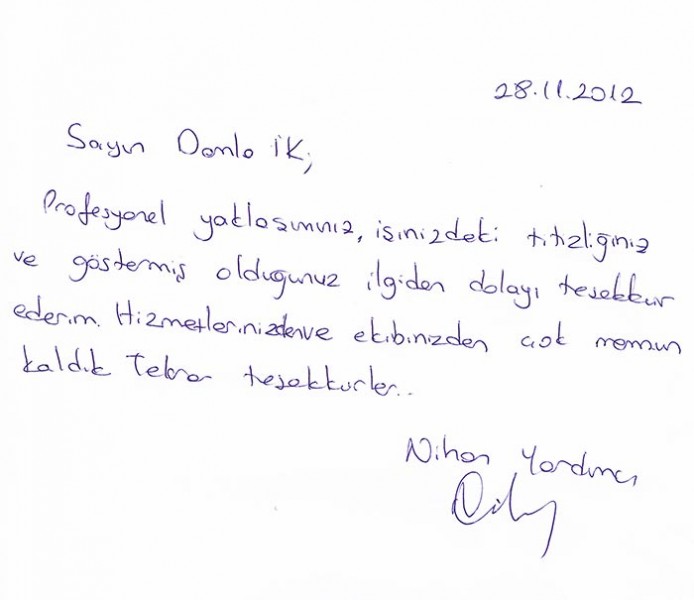 28.11.2012
Sayın Damla İK,
Profesyonel yaklaşımınız, işinizdeki titizliğiniz
ve göstermiş olduğunuz ilgiden dolayı teşekkür
ederim. Hizmetlerinizden ve ekibinizden çok memnun
kaldık Tekrar teşekkürler..
Nihan Yardımcı